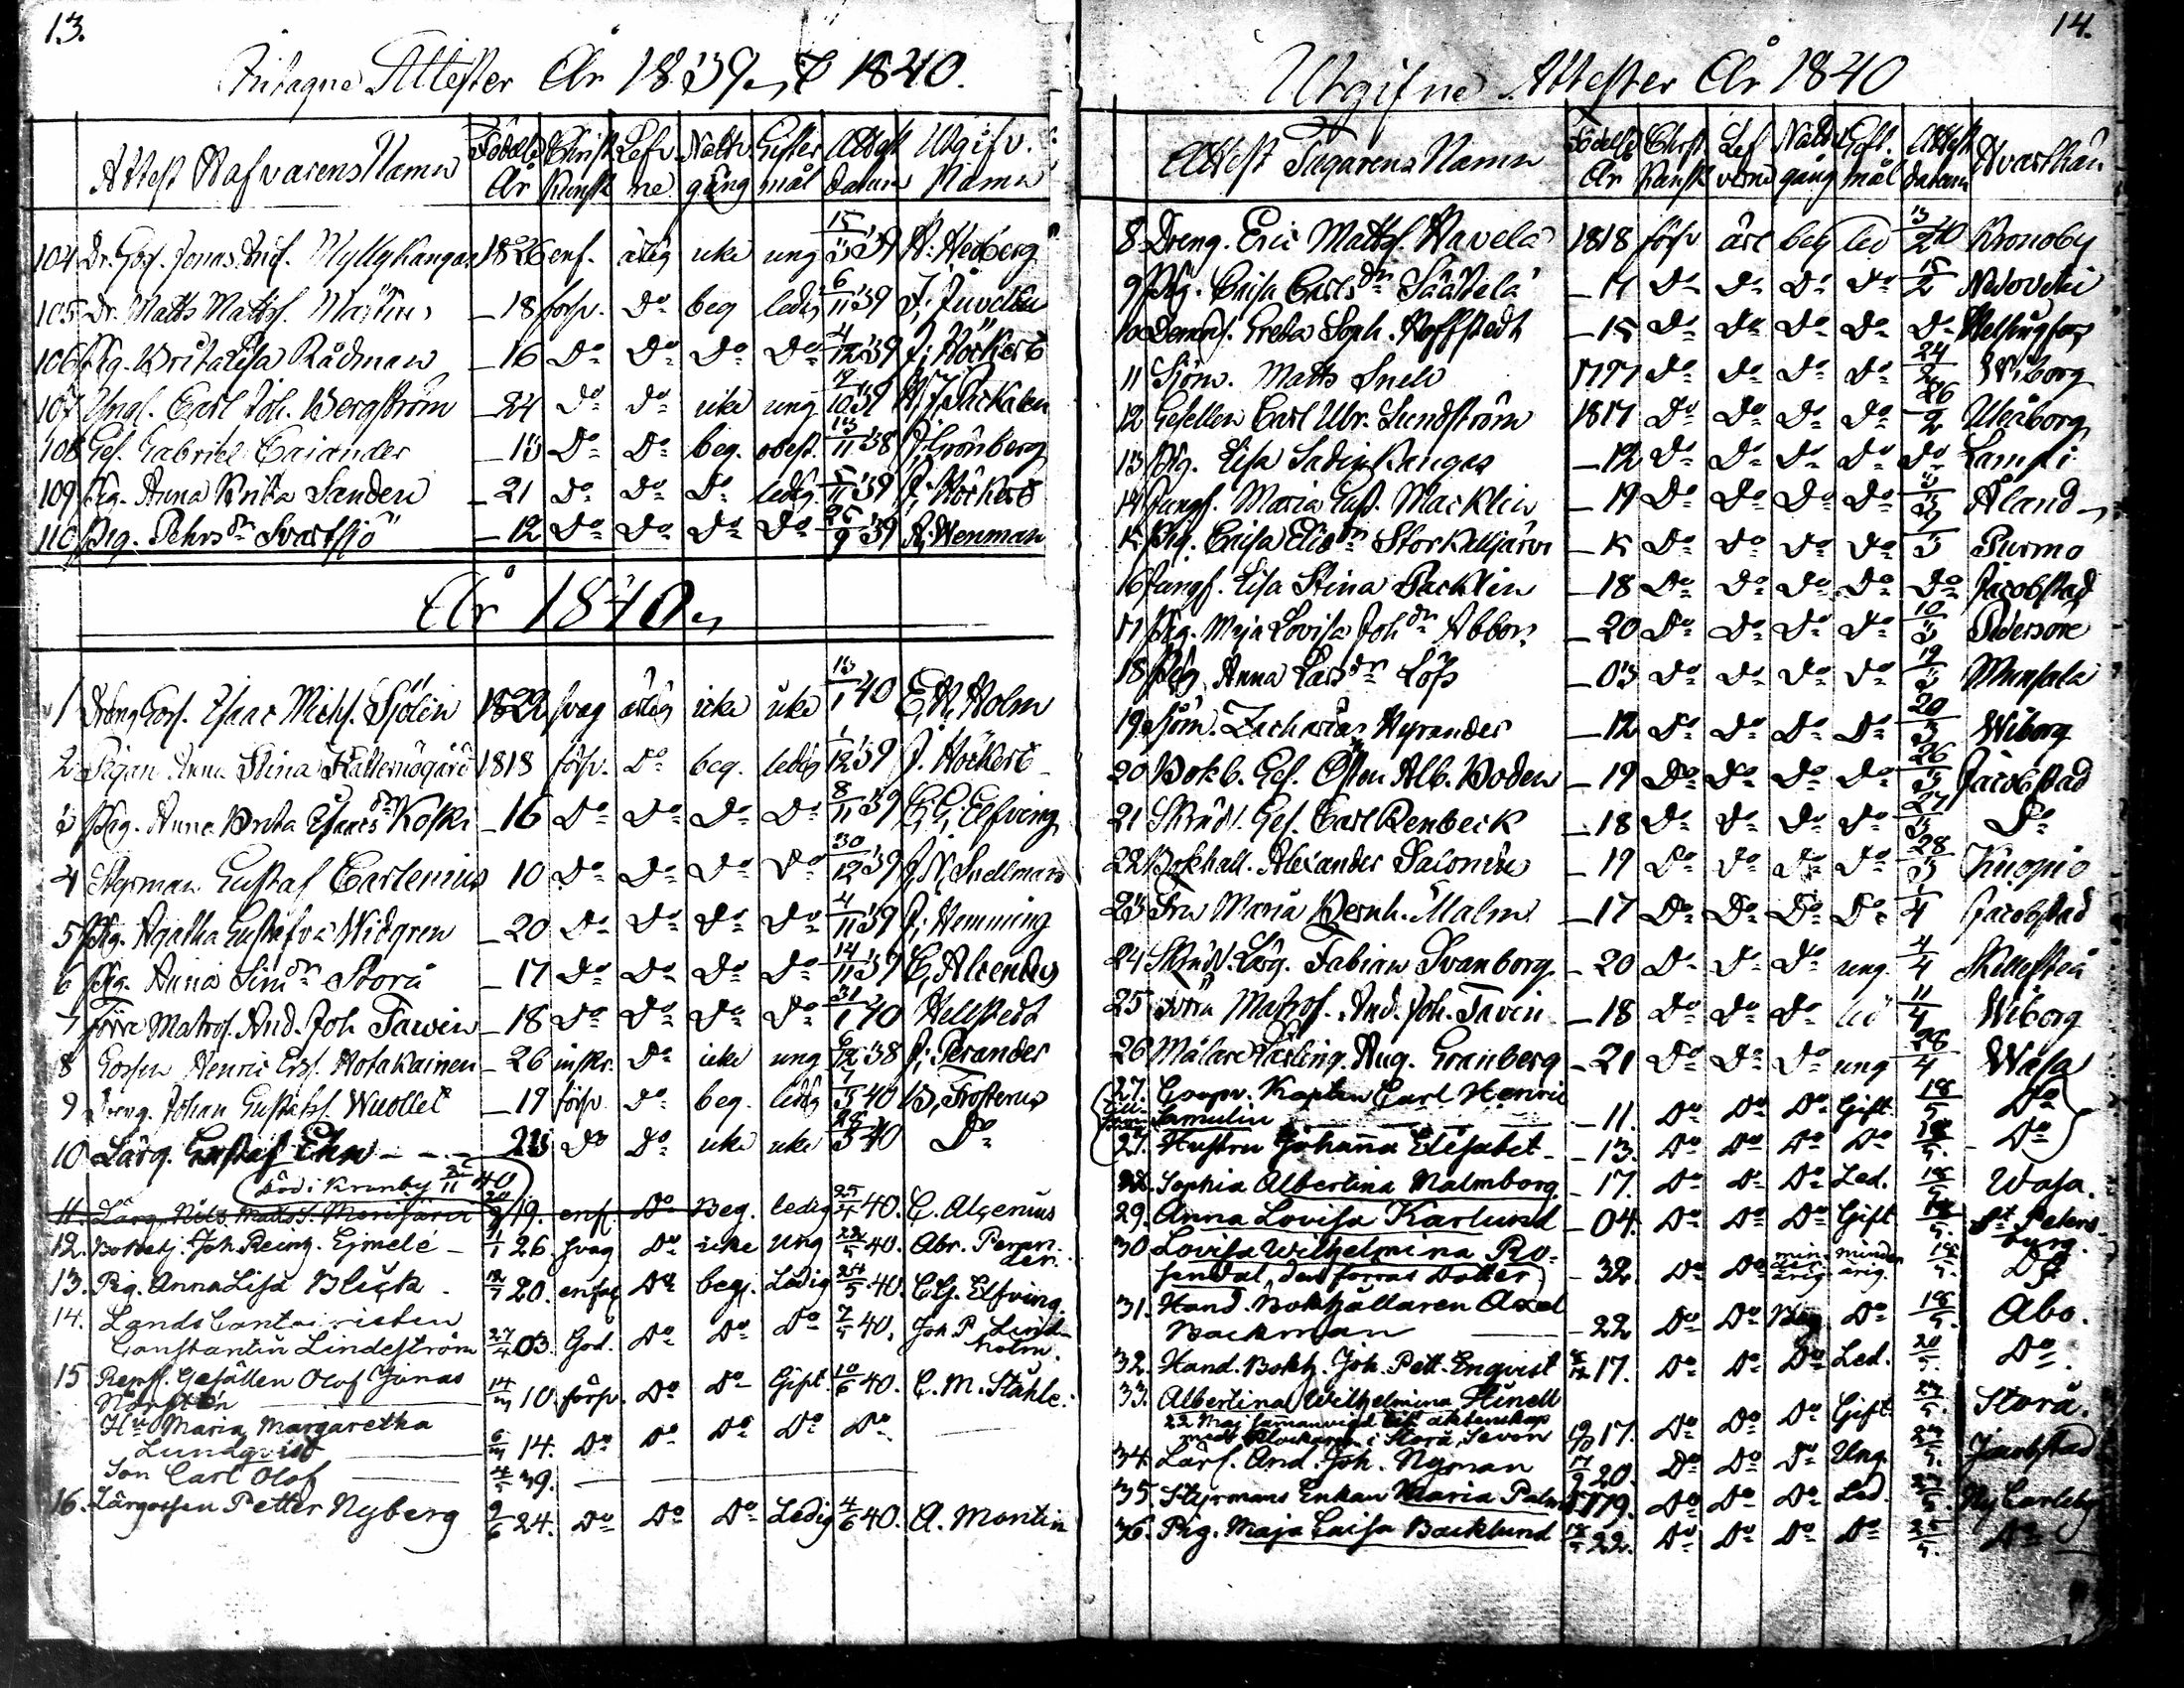 13.
Intagne Attester År 1839 & 1840.
Attest Hafvarens Namn Födels År Christ. Kunsk Lefv. ne Nattv. gång Gifter mål Attest datum Utgifv. Namn
104 Dr. Goss. Jonas And. Myllykangas 1826 enf. ärlig icke ung 15/3 39 A. Hedberg
105 Dr. Matts Mattss. Marttin 18 försv. Do beg ledig 6/11 39 J. Juvelin
106 Pig. Brita Lisa Rådman 16 Do Do Do Do 4/12 39 J. Höckert
107 Yngl. Carl Joh. Bergström 24 Do Do icke ung 10 39
108 Ges. Gabriel Caiander 13 Do Do beg. obest. 13/11 38 J. Grönberg
109 Pig. Anna Brita Sanden 21 Do Do Do ledig 5/11 39 J. Höckert
110 Pig. Pehrsdr Svartsjö 12 Do Do Do Do 25/9 39 A. Wenman
År 1840
1 Dreng Goss. Isaac Michs. Sjölin 1822 svag ärlig icke icke 13/1 40 E. H. Holm
2 Pigan Anna Stina Kattemögård 1818 försv. Do beg. ledig 1/12 39 J. Höckert
3 Pig. Anna Brita Isaacsdr Koski 16 Do Do Do Do 8/11 39 C. G. Elfving
4 Styrman Gustaf Carlenius 10 Do Do Do Do 30/12 39 J. N. Snellman
5 Pig. Agatha Gustafva Widgren 20 Do Do Do Do 4/11 39 J. Hemming
6 Pig. Anna Simdr Storå 17 Do Do Do Do 14/11 39 C. Alcenius
7 Förre Matros. And. Joh Tawin 18 Do Do Do Do 31/1 40 Hellstedt
8 Gossen Henric Ers. Hotakainen 26 inskr. Do icke ung 6/12 38 J. Perander
9 Dreng. Johan Gustafss. Wuollet 19 försv. Do beg. ledig 7/3 40 B. Frosterus
10 Lärg. Gustaf Ehn 23 Do Do icke icke 26/3 40 Do
Död i Kronby 25/11 40
11. Lärg. Nils Mattss. Merijärvi 20/2 19. enf. Do Beg. ledig 25/4 40. C. Alcenius
12. Bokbetj. Joh. Reinz. Ejmelé 11/1 26. svag Do icke Ung 22/5 40. Abr. Peran-
der.
13. Pig. Anna Lisa Bläck 12/7 20. enfag Do beg. Ledig 24/5 40. C. G. Elfving.
14. Lands Cantoristen
Constantin Lindeström 27/4 03. God. Do Do Do 7/5 40. Joh. P. Lind-
holm.
15 Repsl. Gesällen Olof Jonas
Norstén 14/3 10. försv. Do Do Gift. 10/6 40. C. M. Ståhle.
Hu Maria Margaretha
Lundqvist 6/3 14. Do Do Do Do Do
Son Carl Olof 4/5 39.
16. Lärgossen Petter Nyberg 9/6 24. Do Do Do Ledig 4/6 40. A. Montin
14.
Utgifne Attester År 1840
Attest Tagarens Namn Födels År Christ. Kunsk Lef verne Nattv gång Gift. mål Attest datum Hvarthän
8 Dreng. Eric Matts. Havela 1818 försv ärl beg led 13/2 40 Kronoby
9 Pig. Caisa Carlsdr Säävelä 17 Do Do Do Do 15/2 Nedervetil
10 Demois. Greta Soph. Hoffstedt 15 Do Do Do Do Do Helsingfors
11 Sjöm. Matts Snell 1797 Do Do Do Do 24/2 Wiborg
12 Gesellen Carl Ulr. Sundström 1817 Do Do Do Do 26/2 Uleåborg
13 Pig. Lisa Sadinkangas 12 Do Do Do Do Do Lampi
14 Jungf. Maria Gust. Macklin 19 Do Do Do Do Åland
15 Pig. Caisa Eliedr Storkelljärvi 15 Do Do Do Do Purmo
16 Jungf. Lisa Stina Packlin 18 Do Do Do Do Do Jacobstad
17 Pig. Maja Lovisa Johdr Abbor 20 Do Do Do Do 10/3 Pedersöre
18 Pig. Anna Larsdr Löfs 03 Do Do Do Do 19/3 Munsala
19 Sjöm. Zacharias Hyrander 12 Do Do Do Do 20/3 Wiborg
20 Bokb. Ges. Östen Alb. Boden 19 Do Do Do Do 26/3 Jacobstad
21 Skräd. Ges. Carl Renbeck 18 Do Do Do Do 27/3 Do
22 Bokhall. Alexander Salonen 19 Do Do Do Do 28/3 Kuopio
23 Fru Maria Bernh. Malm 17 Do Do Do Do 1/4 Jacobstad
24 Skräd. Lärg. Fabian Svanborg 20 Do Do Do ung. 4/4 Skellefteå
25 Förra Matros. And. Joh. Tavin 18 Do Do Do led 11/4 Wiborg
26 Målare Lärling. Aug. Granberg 21 Do Do Do ung 28/4 Wasa
27. Coopv. Kapten Carl Henric
Samulin 11. Do Do Do Gift. 18/5 Do
27. Hustru Johanna Elisabet 13. Do Do Do Do 18/5. Do
28. Sophia Albertina Malmborg 17. Do Do Do Led. 18/5 Wasa.
29. Anna Lovisa Karlund 04. Do Do Do Gift 18/5. St Peters-
burg.
30. Lovisa Wilhelmina Ro-
sendal, den förras Dotter 32. Do Do min-derårig minderårig. 18/5. Do
31. Hand. Bokhållaren Axel
Backman 22 Do Do Beg Do 18/5. Åbo.
32. Hand. Bokh. Joh. Pett. Enqvist 8/12 17. Do Do Do Led. 20/5. Do
33. Albertina Wilhelmina Hinell
22 Maj sammanvigd till äktenskap
med Klockaren i Storå, Sevon 19/10 17. Do Do Do Gift. 23/5. Storå.
34. Lärf. And. Joh. Nyman 17/9 20. Do Do Do Ung. 23/5. Jacobstad
35. Styrmans Enkan Maria Palm 1779. Do Do Do Led. 23/5. Ny Carleby
36. Pig. Maja Caisa Backlund 18/5 22. Do Do Do Do 25/5. Do